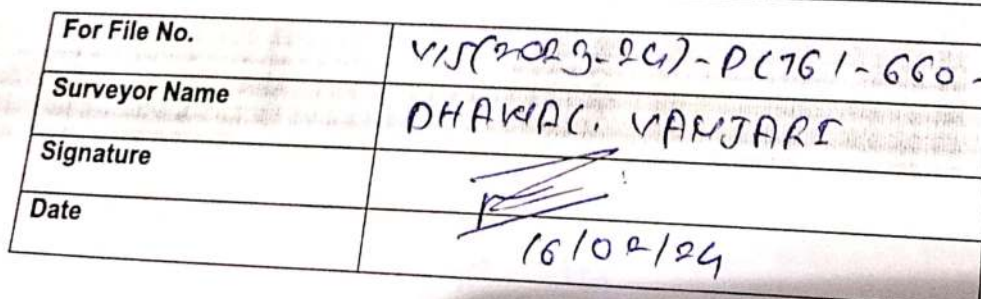 For File No. VIS(2023-24)-PL761-660-
Surveyor Name DHAWAL VANJARI
Signature
Date 16/02/24